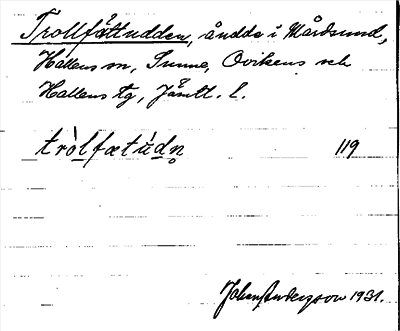 Trollfättudden, udde i Mårdsund,
Hallens sn, Sunne, Ovikens och
Hallens tg, Jämtl. l.
tròlfætúdn̥ 119
Johan Anderson 1931.